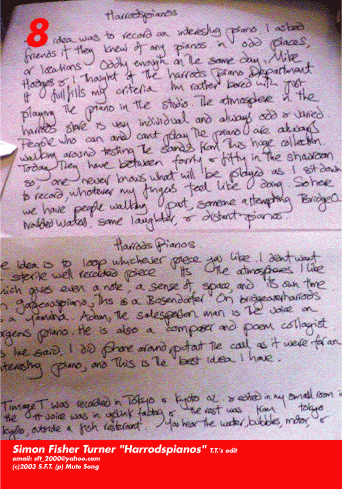 Harrodspianos
8
idea was to record an interesting piano. I asked
friends if they knew of any pianos in odd places
or locations. Oddly enough on the same day, Mike
Hodges & I thought of the harrods Piano Department
It fullfills my criteria. Im rather bored with just
playing the piano in the studio. The atmosphere in the
harrods store is very individual and always odd & varied
People who can and cant play the piano are always
walking around testing the sounds from this huge collection
Today They have between forty & fifty in the showroom
so, one never knows what will be played as I sit down
to record, whatever my fingers feel like doing. So here
we have people walking past, someone attempting Bridge O.
troubled water, some laughter, & distant pianos
Harrods Pianos
e idea is to loop whichever piece you like. I didnt want
sterile well recorded piece. Its the atmospheres I like
which gives even a note, a sense of space, and its own time
piano, This is a Bosendorfer. On
a Yamaha. Adam, the salesperson man is the voice on
piano. He is also a composer and poem collagist
he said. I did phone around, put out the call as it were for an
interesting piano, and This is the best idea I have.
was recorded in Tokyo & Kyoto 02. & edited in my small room in
the voice was in factory & the rest was from tokyo
Kyoto, outside a fish resteraunt. You hear the water, bubbles motor &
Simon Fisher Turner "Harrodspianos" T.T.'s edit
email: sft_2000@yahoo.com
(c)2003 S.F.T. (p) Mute Song